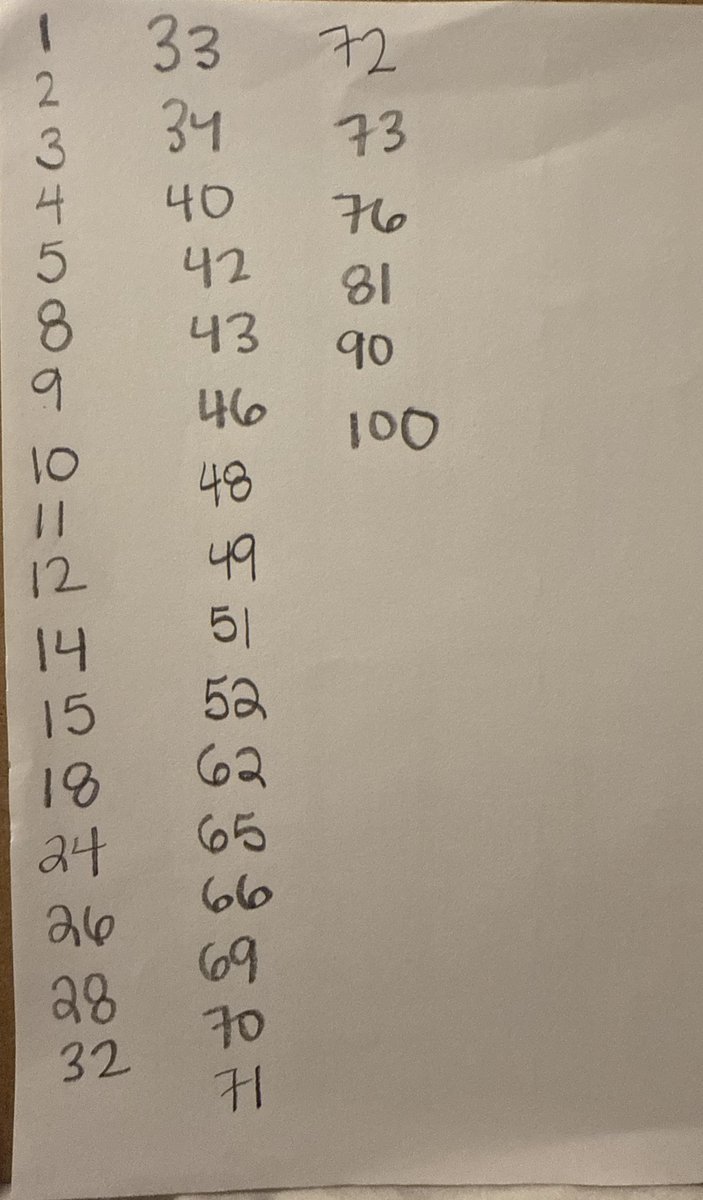 1
2
3
4
5
8
9
10
11
12
14
15
18
24
26
28
32
33
34
40
42
43
46
48
49
51
52
62
65
66
69
70
71
72
73
76
81
90
100